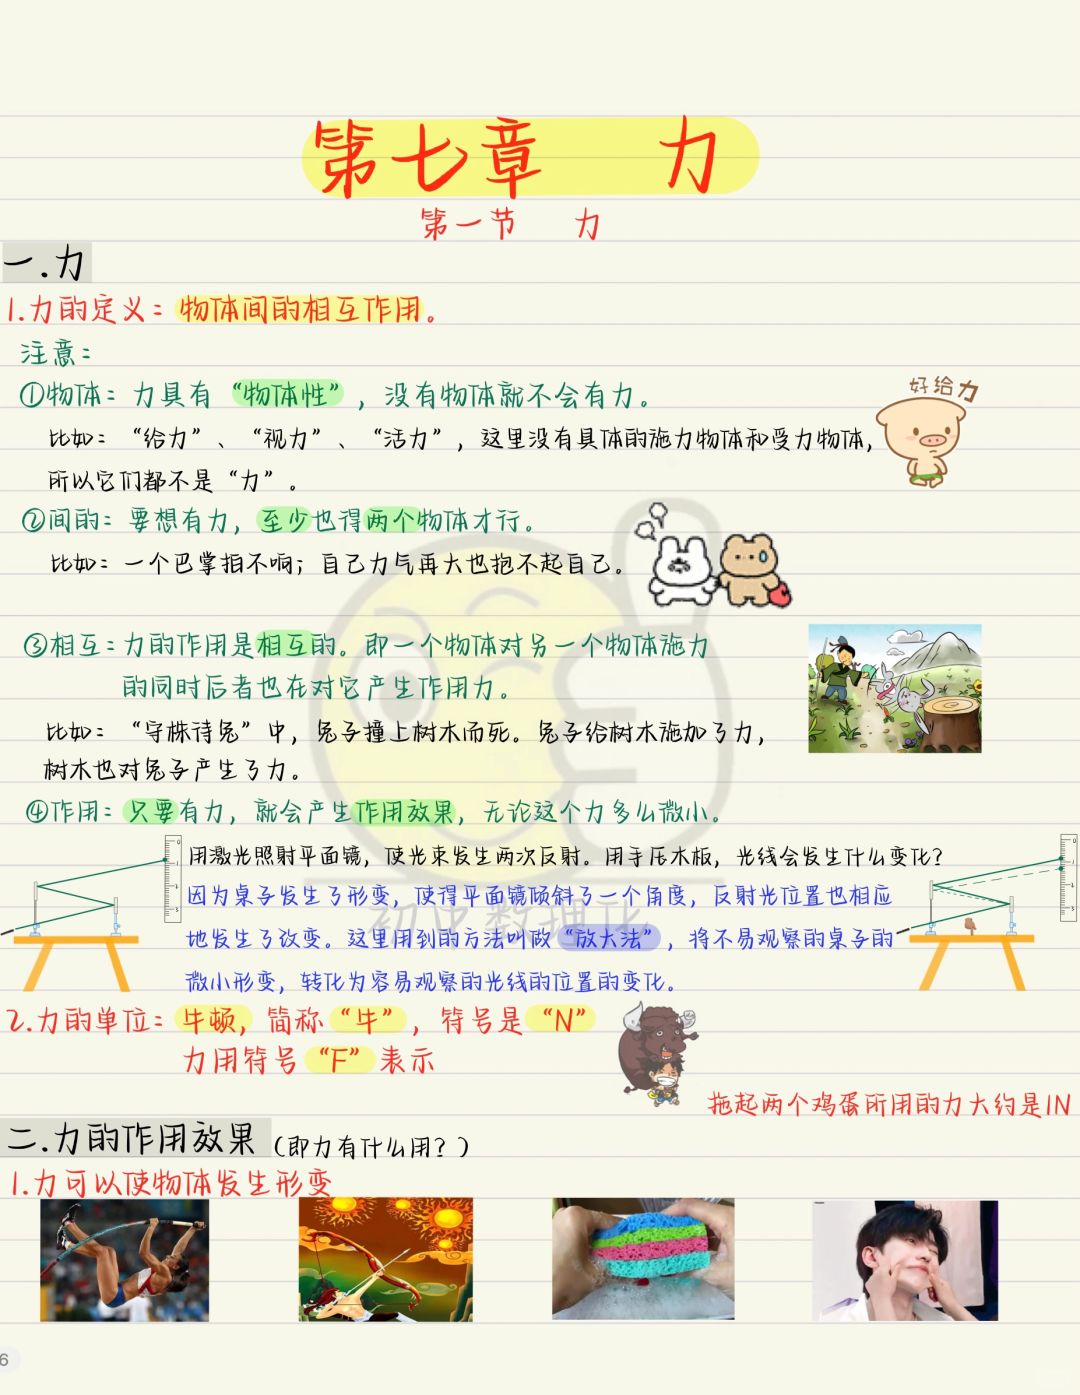 第七章 力
第一节 力
一.力
1.力的定义：物体间的相互作用。
注意：
①物体：力具有“物体性”，没有物体就不会有力。
好给力
比如：“给力”、“视力”、“活力”，这里没有具体的施力物体和受力物体，
所以它们都不是“力”。
②间的：要想有力，至少也得两个物体才行。
比如：一个巴掌拍不响；自己力气再大也抱不起自己。
③相互：力的作用是相互的。即一个物体对另一个物体施力
的同时后者也在对它产生作用力。
比如：“守株待兔”中，兔子撞上树木而死。兔子给树木施加了力，
树木也对兔子产生了力。
④作用：只要有力，就会产生作用效果，无论这个力多么微小。
用激光照射平面镜，使光束发生两次反射。用手压木板，光线会发生什么变化？
因为桌子发生了形变，使得平面镜倾斜了一个角度，反射光位置也相应
地发生了改变。这里用到的方法叫做“放大法”，将不易观察的桌子的
微小形变，转化为容易观察的光线的位置的变化。
初中数理化
2.力的单位：牛顿，简称“牛”，符号是“N”
力用符号“F”表示
拖起两个鸡蛋所用的力大约是1N
二.力的作用效果（即力有什么用？）
1.力可以使物体发生形变
6